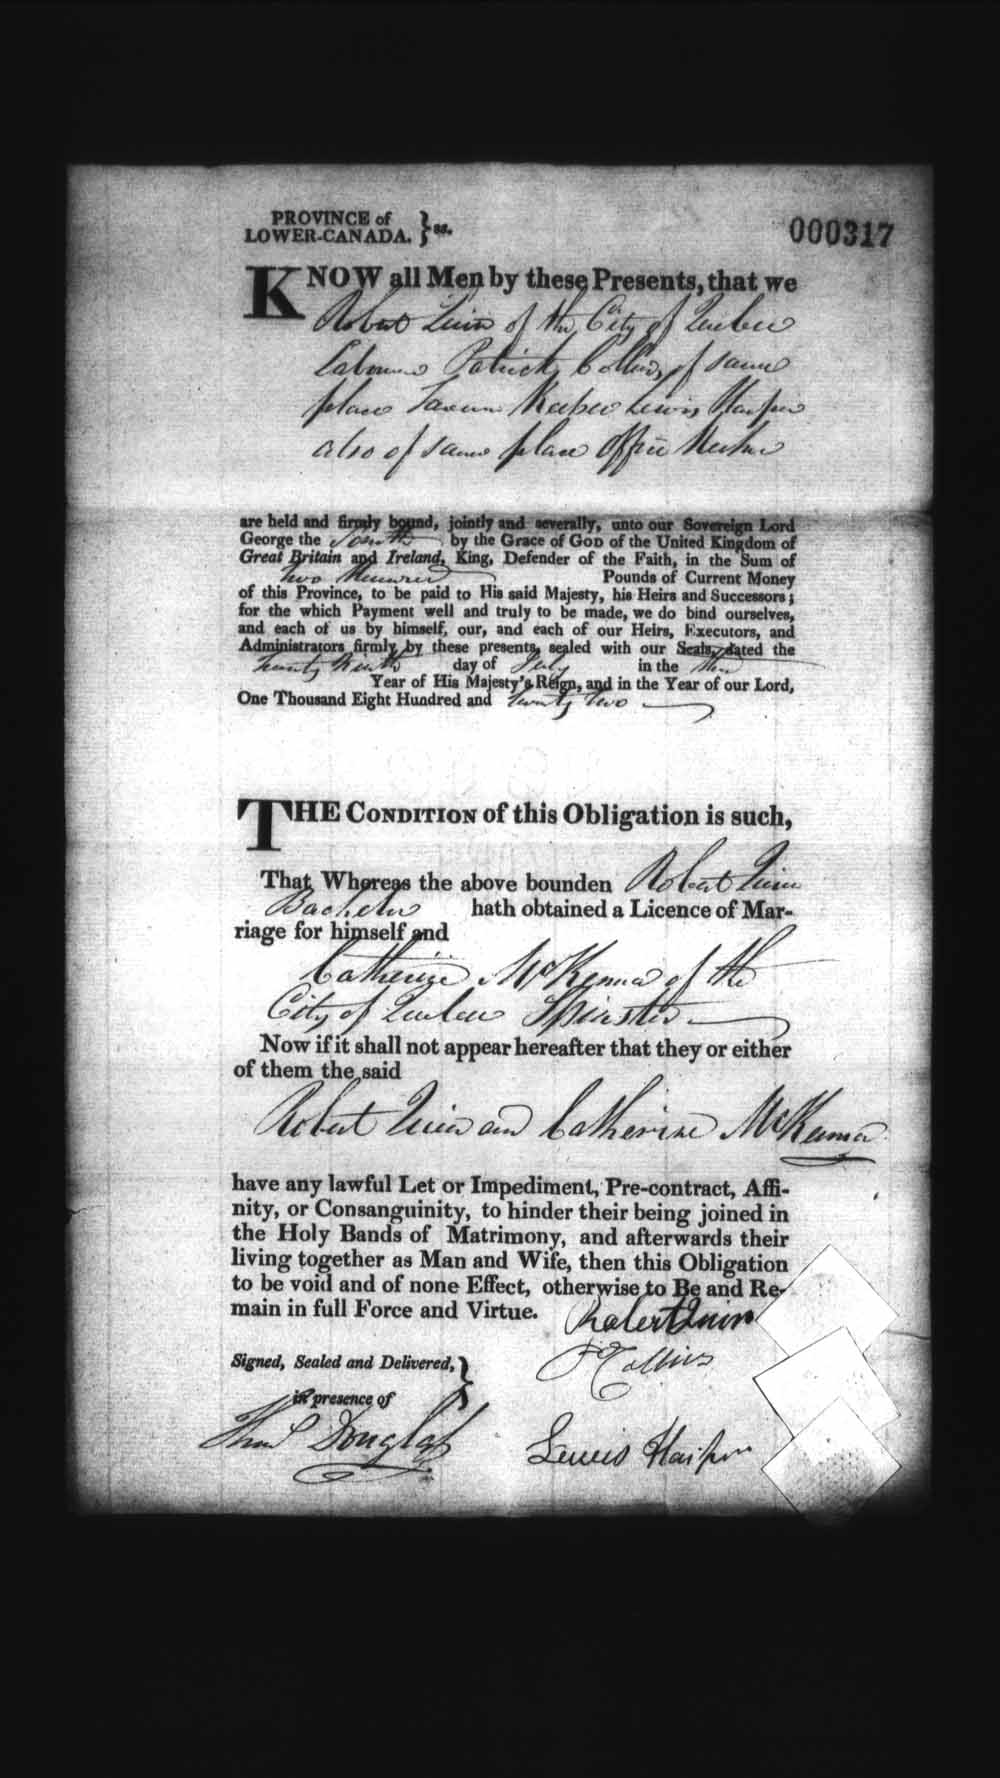 PROVINCE of
LOWER-CANADA. } ss.
000317
KNOW all Men by these Presents, that we
Robert Quinn of the City of Quebec
Labourer Patrick Collins of same
place Tavern Keeper Lewis Harper
also of same place
are held and firmly bound, jointly and severally, unto our Sovereign Lord
George the Fourth by the Grace of GOD of the United Kingdom of
Great Britain and Ireland, King, Defender of the Faith, in the Sum of
Two Hundred Pounds of Current Money
of this Province, to be paid to His said Majesty, his Heirs and Successors;
for the which Payment well and truly to be made, we do bind ourselves,
and each of us by himself, our, and each of our Heirs, Executors, and
Administrators firmly by these presents, sealed with our Seals, dated the
day of July in the
Year of His Majesty's Reign, and in the Year of our Lord,
One Thousand Eight Hundred and twenty two
THE CONDITION of this Obligation is such,
That Whereas the above bounden Robert Quinn
Bachelor hath obtained a Licence of Mar-
riage for himself and
Catherine McKenna of the
City of Quebec Spinster
Now if it shall not appear hereafter that they or either
of them the said
Robert Quinn and Catherine McKenna
have any lawful Let or Impediment, Pre-contract, Affi-
nity, or Consanguinity, to hinder their being joined in
the Holy Bands of Matrimony, and afterwards their
living together as Man and Wife, then this Obligation
to be void and of none Effect, otherwise to Be and Re-
main in full Force and Virtue.
Robert Quinn
Signed, Sealed and Delivered, }
P Collins
in presence of
Douglass
Lewis Harper